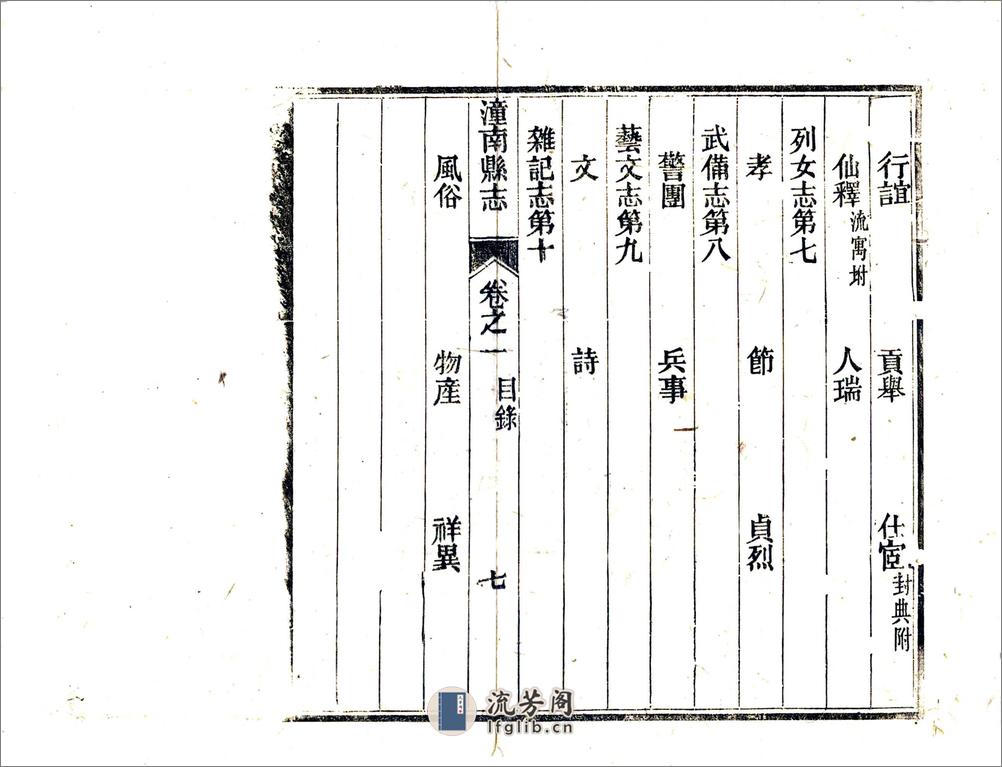 行誼 貢舉 仕宦封典附
仙釋流寓坿 人瑞
列女志第七
孝 節 貞烈
武備志第八
警團 兵事
藝文志第九
文 詩
雜記志第十
潼南縣志 卷之一 目錄 七
風俗 物產 祥異
流芳阁
lfglib.cn